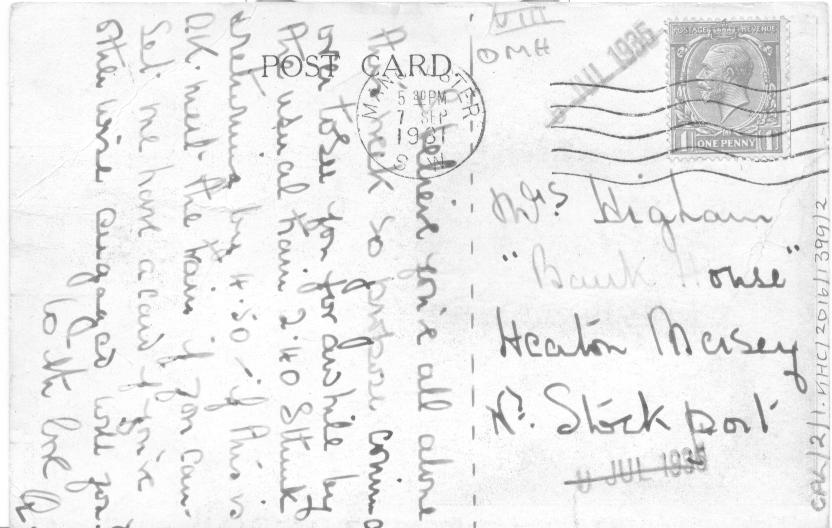 POST CARD
VIII
OMH
JUL 1935
MANCHESTER
5 30 PM
7 SEP
1931
POSTAGE REVENUE
ONE PENNY
I believe you're all alone
this week so propose coming
over to see you for awhile by
the usual train 2.40 Sthnk
returning by 4.50 - if this is
O.K. meet the train if you can.
Let me have a card if you're
otherwise engaged will you
With love
Mrs Higham
"Bank House"
Heaton Mersey
Nr. Stockport
JUL 1935
CPR/2/1.NHC/2016/1399/2